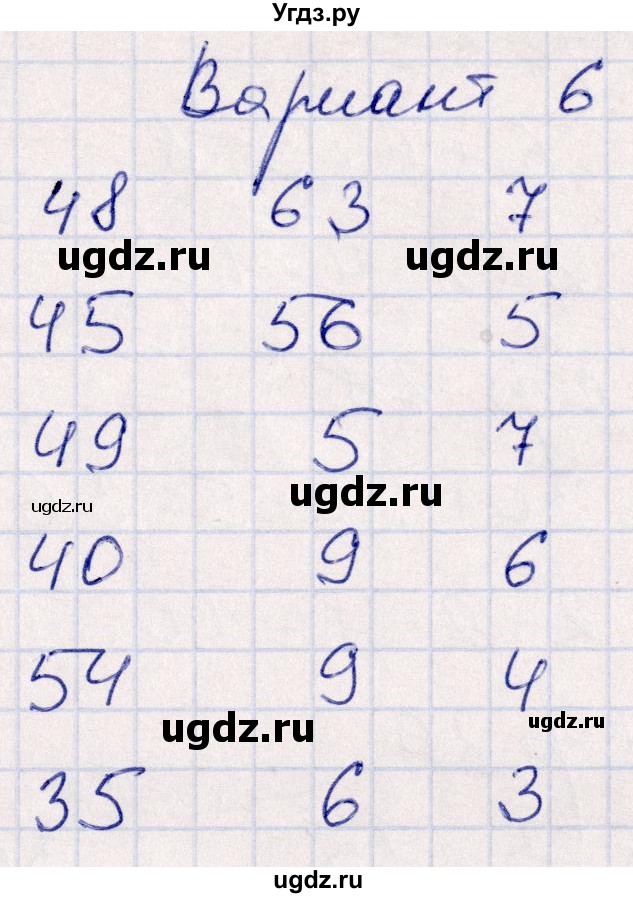 Угдз.ру
Вариант 6
48 63 7
ugdz.ru ugdz.ru
45 56 5
49 5 7
ugdz.ru ugdz.ru
40 9 6
54 9 4
ugdz.ru ugdz.ru
35 6 3
ugdz.ru